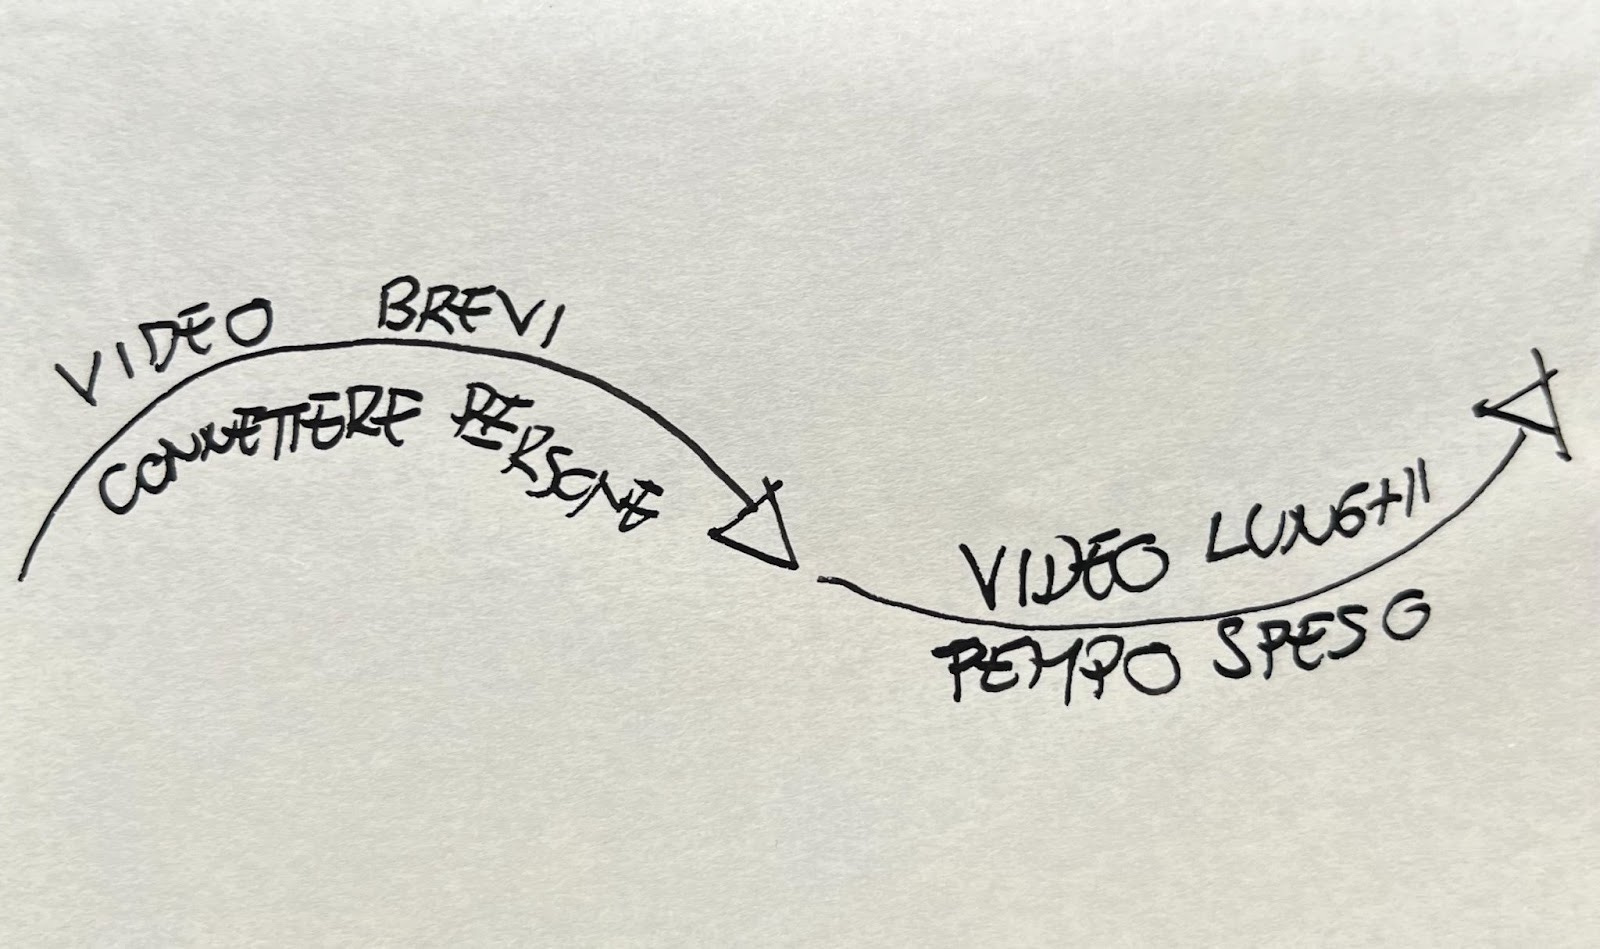 VIDEO BREVI
CONNETTERE PERSONE
VIDEO LUNGHI
TEMPO SPESO